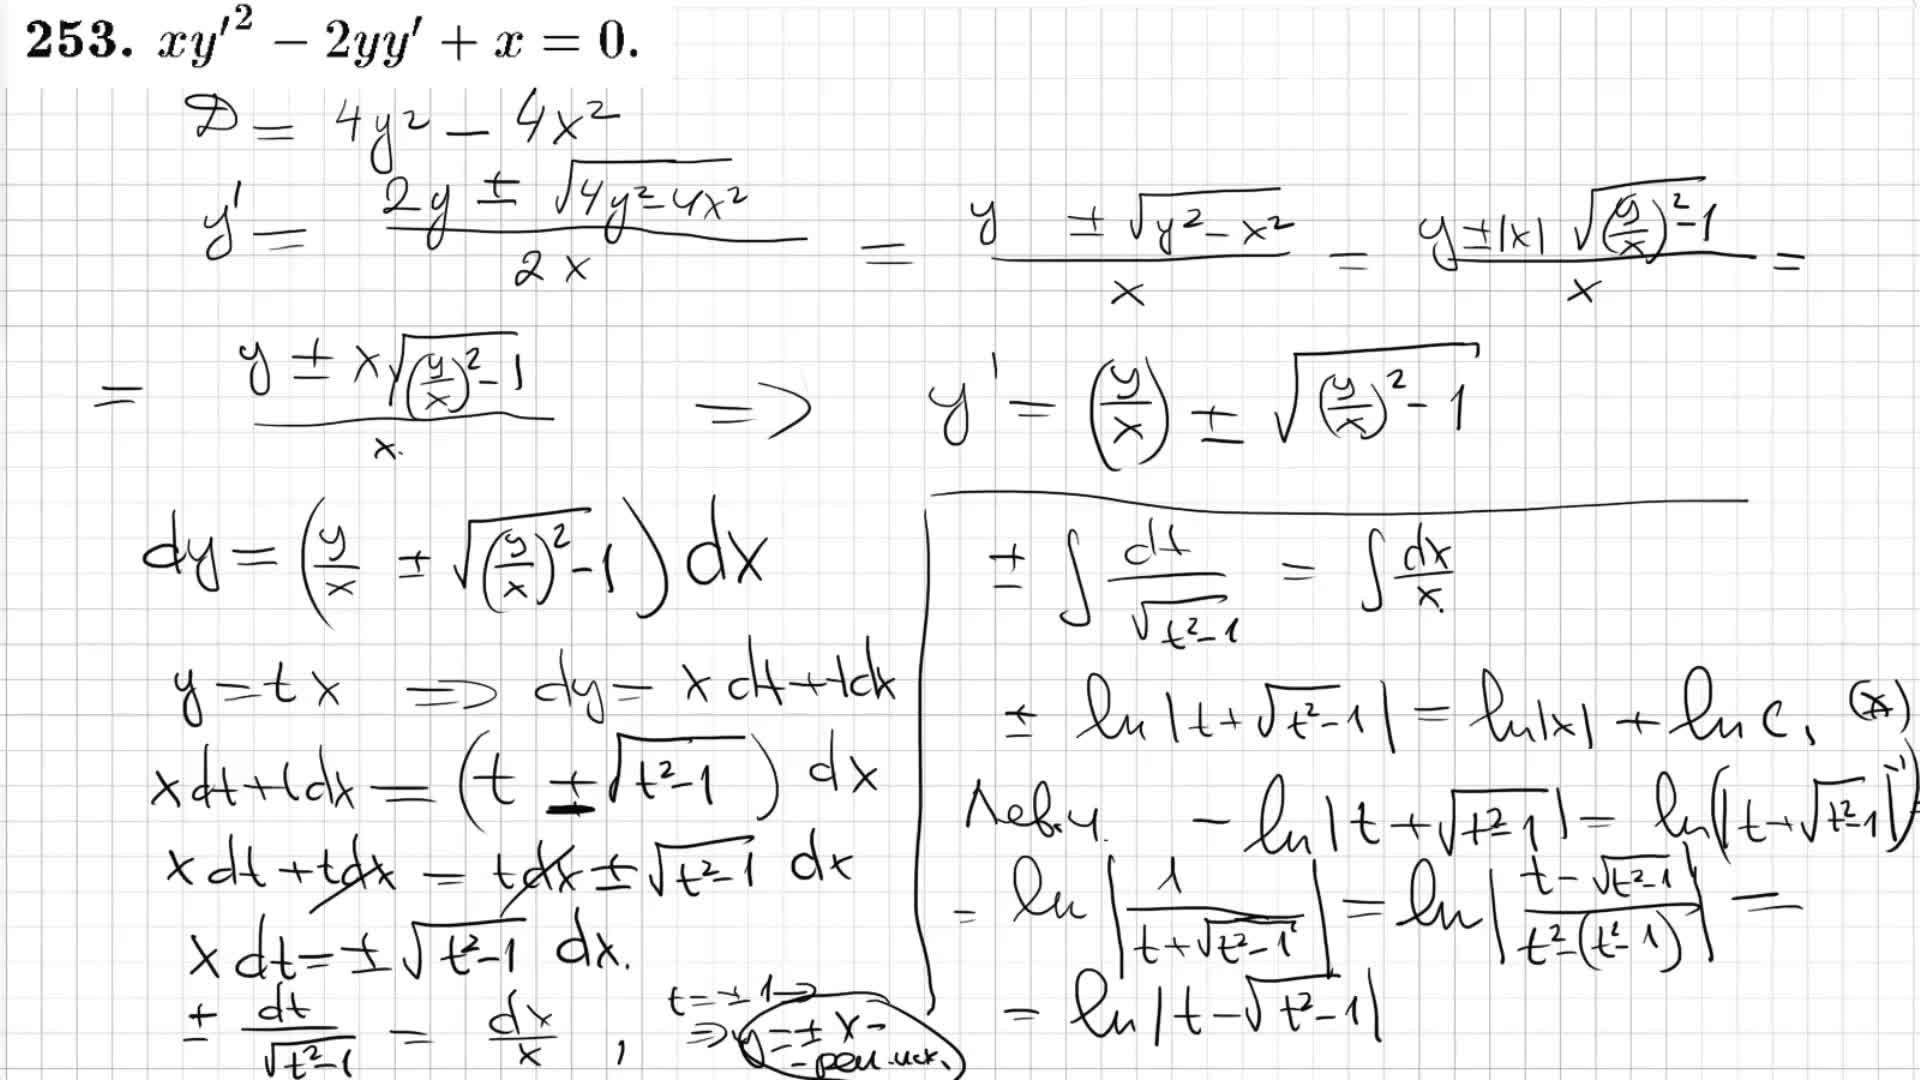 253. xy'² − 2yy' + x = 0.
D = 4y² − 4x²
y' = (2y ± √(4y² − 4x²)) / 2x = (y ± √(y² − x²)) / x = (y ± |x| √((y/x)² − 1)) / x =
= (y ± x√((y/x)² − 1)) / x. => y' = (y/x) ± √((y/x)² − 1)
dy = (y/x ± √((y/x)² − 1)) dx
y = tx => dy = x dt + t dx
x dt + t dx = (t ± √(t² − 1)) dx
x dt + t dx = t dx ± √(t² − 1) dx
x dt = ± √(t² − 1) dx.
± dt/√(t² − 1) = dx/x , t = ± 1 →
=> y = ± x –
– реш. исх.
± ∫ dt/√(t² − 1) = ∫ dx/x.
± ln |t + √(t² − 1)| = ln|x| + ln C, (*)
Лев.ч. − ln |t + √(t² − 1)| = ln(|t + √(t² − 1)|⁻¹) =
= ln |1/(t + √(t² − 1))| = ln |(t − √(t² − 1))/(t² − (t² − 1))| =
= ln |t − √(t² − 1)|